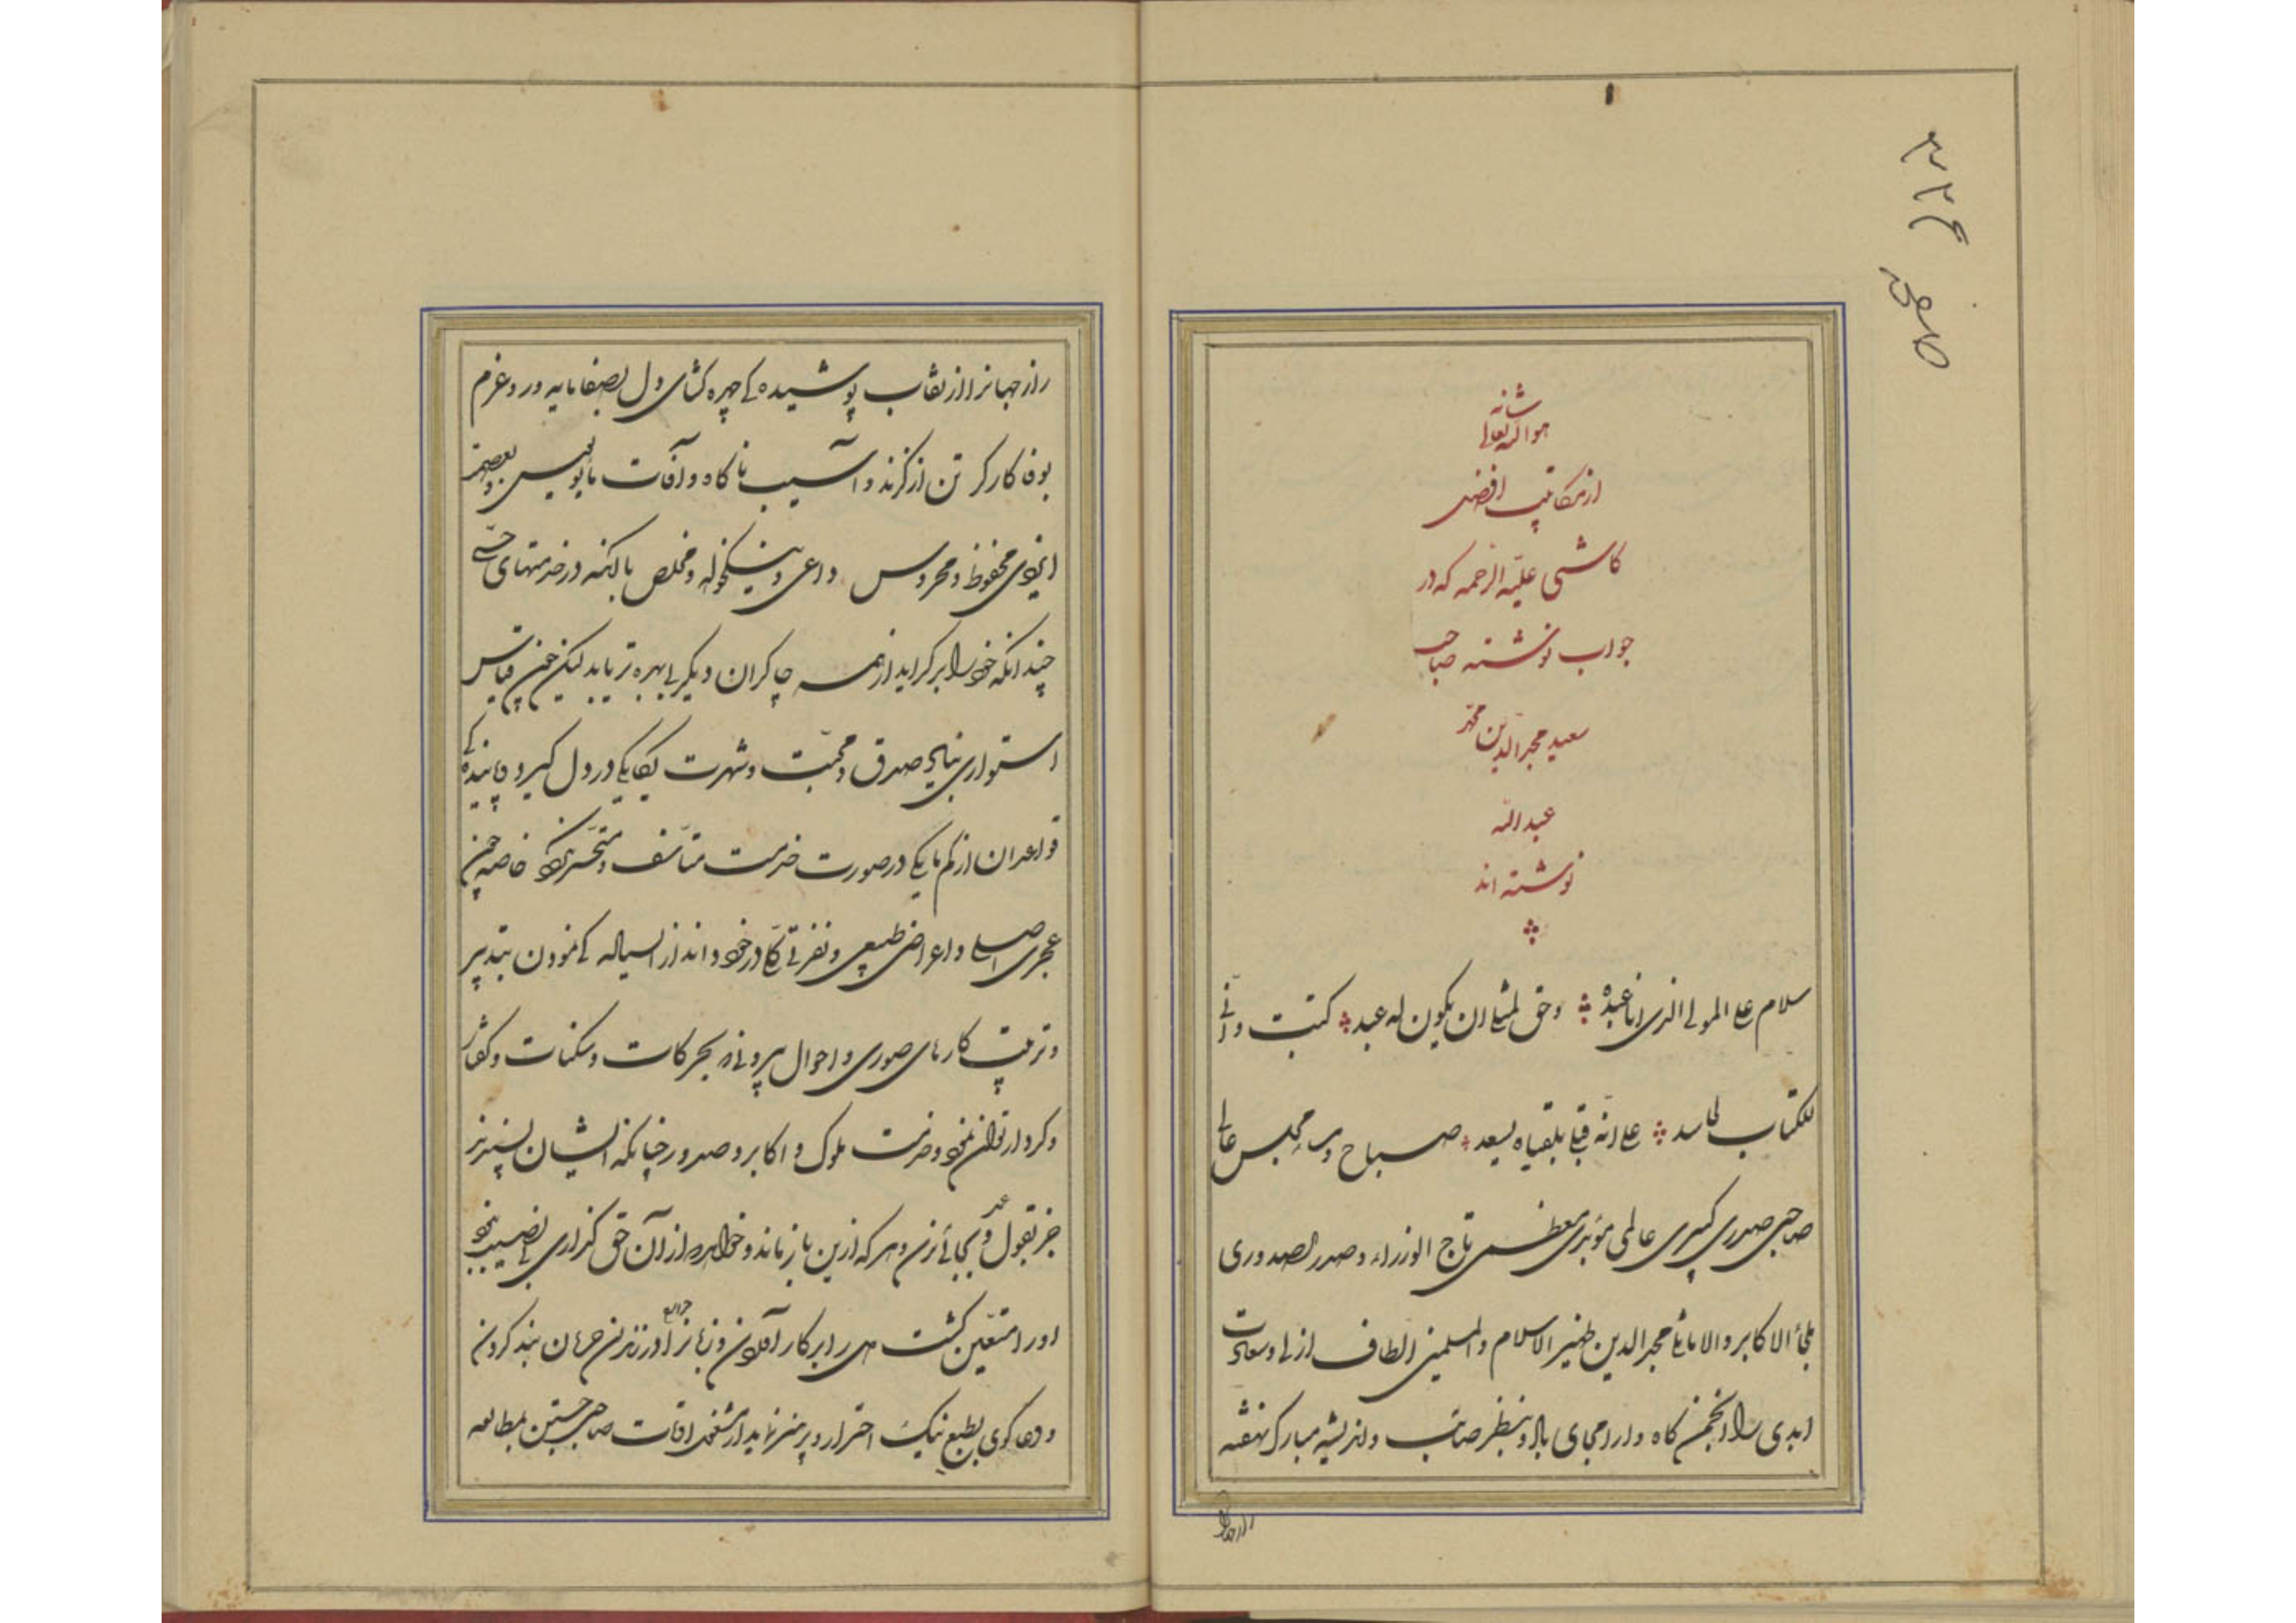 هو الله تعالی شانه
از مکاتیب افضل
کاشی علیه الرحمه که در
جواب نوشته صاحب
سعید مجدالدین محمد
عبدالله
نوشته اند
سلام علی المولی الذی انا عبده وحق لمثلی ان یکون له عبد کتبت وانی
للکتاب لحاسد علی انه قبلی بلقیاه یسعد صباح و مسا مجلس عالی
صاحبی صدری کبیری عالمی مؤیدی معظمی تاج الوزراء و صدر الصدوری
ملجأ الاکابر والاماثل مجدالدین ظهیر الاسلام والمسلمین الطاف ازلی و سعادت
ابدی را انجمن گاه و آرامجای باد و بنظر صائب و اندیشه مبارک نهفته
راز جهانرا از نقاب پوشیده کی چهره گشای و دل بصفا مایه ور و عزم
بوفا کارگر تن از گزند و آسیب ناگاه و آفات مأیوس و بعصمت
ایزدی محفوظ و محروس داعی و نیکخواه و مخلص با آنکه در خدمتهای حسی
چندانکه خود را برگراید از همه چاکران دیگر بی بهره تر یابد لیکن چون قیاس
استواری نتایج صدق و محبت و شهرت یگانگی در دل گیرد و پایندگی
قواعد آن از کم مایگی در صورت خدمت متأسف و متحسر نگردد خاصه چون
عجزی اصلی و اعراض طبیعی و نفرتی در خود داند از سیاله کی نمودن بتدبیر
و ترتیب کارهای صوری و احوال بیرونی بحرکات و سکنات و گفتار
و کردار توان نمود و خدمت ملوک و اکابر و صدور چنانکه ایشان بپسندند
جز بقول و عمل بجائی نرسد و هر که ازین باز ماند و خواهد از آن حق گزاری بی نصیب بود
او را متعین گشت دل را بر کار آوردن و زبانرا در زندان دهان بند کردن
و دعاگوی بطبع نیک احتراز و پرهیز نماید از شغل اوقات صاحبی جستن بمطالعه